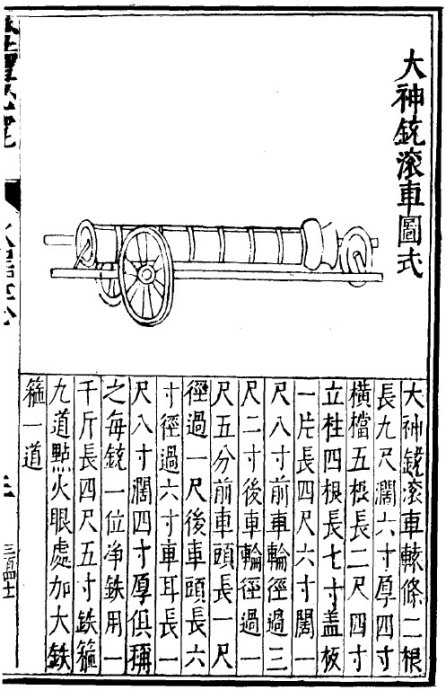 大神銃滾車圖式
大神銃滾車轅條二根
長九尺濶六寸厚四寸
橫檔五根長二尺四寸
立柱四根長七寸盖板
一片長四尺六寸闊一
尺八寸前車輪徑過三
尺二寸後車輪徑過一
尺五分前車頭長一尺
徑過一尺後車頭長六
寸徑過六寸車耳長一
尺八寸濶四寸厚俱稱
之每銃一位净鉄用一
千斤長四尺五寸鉄箍
九道㸃火眼處加大鉄
箍一道